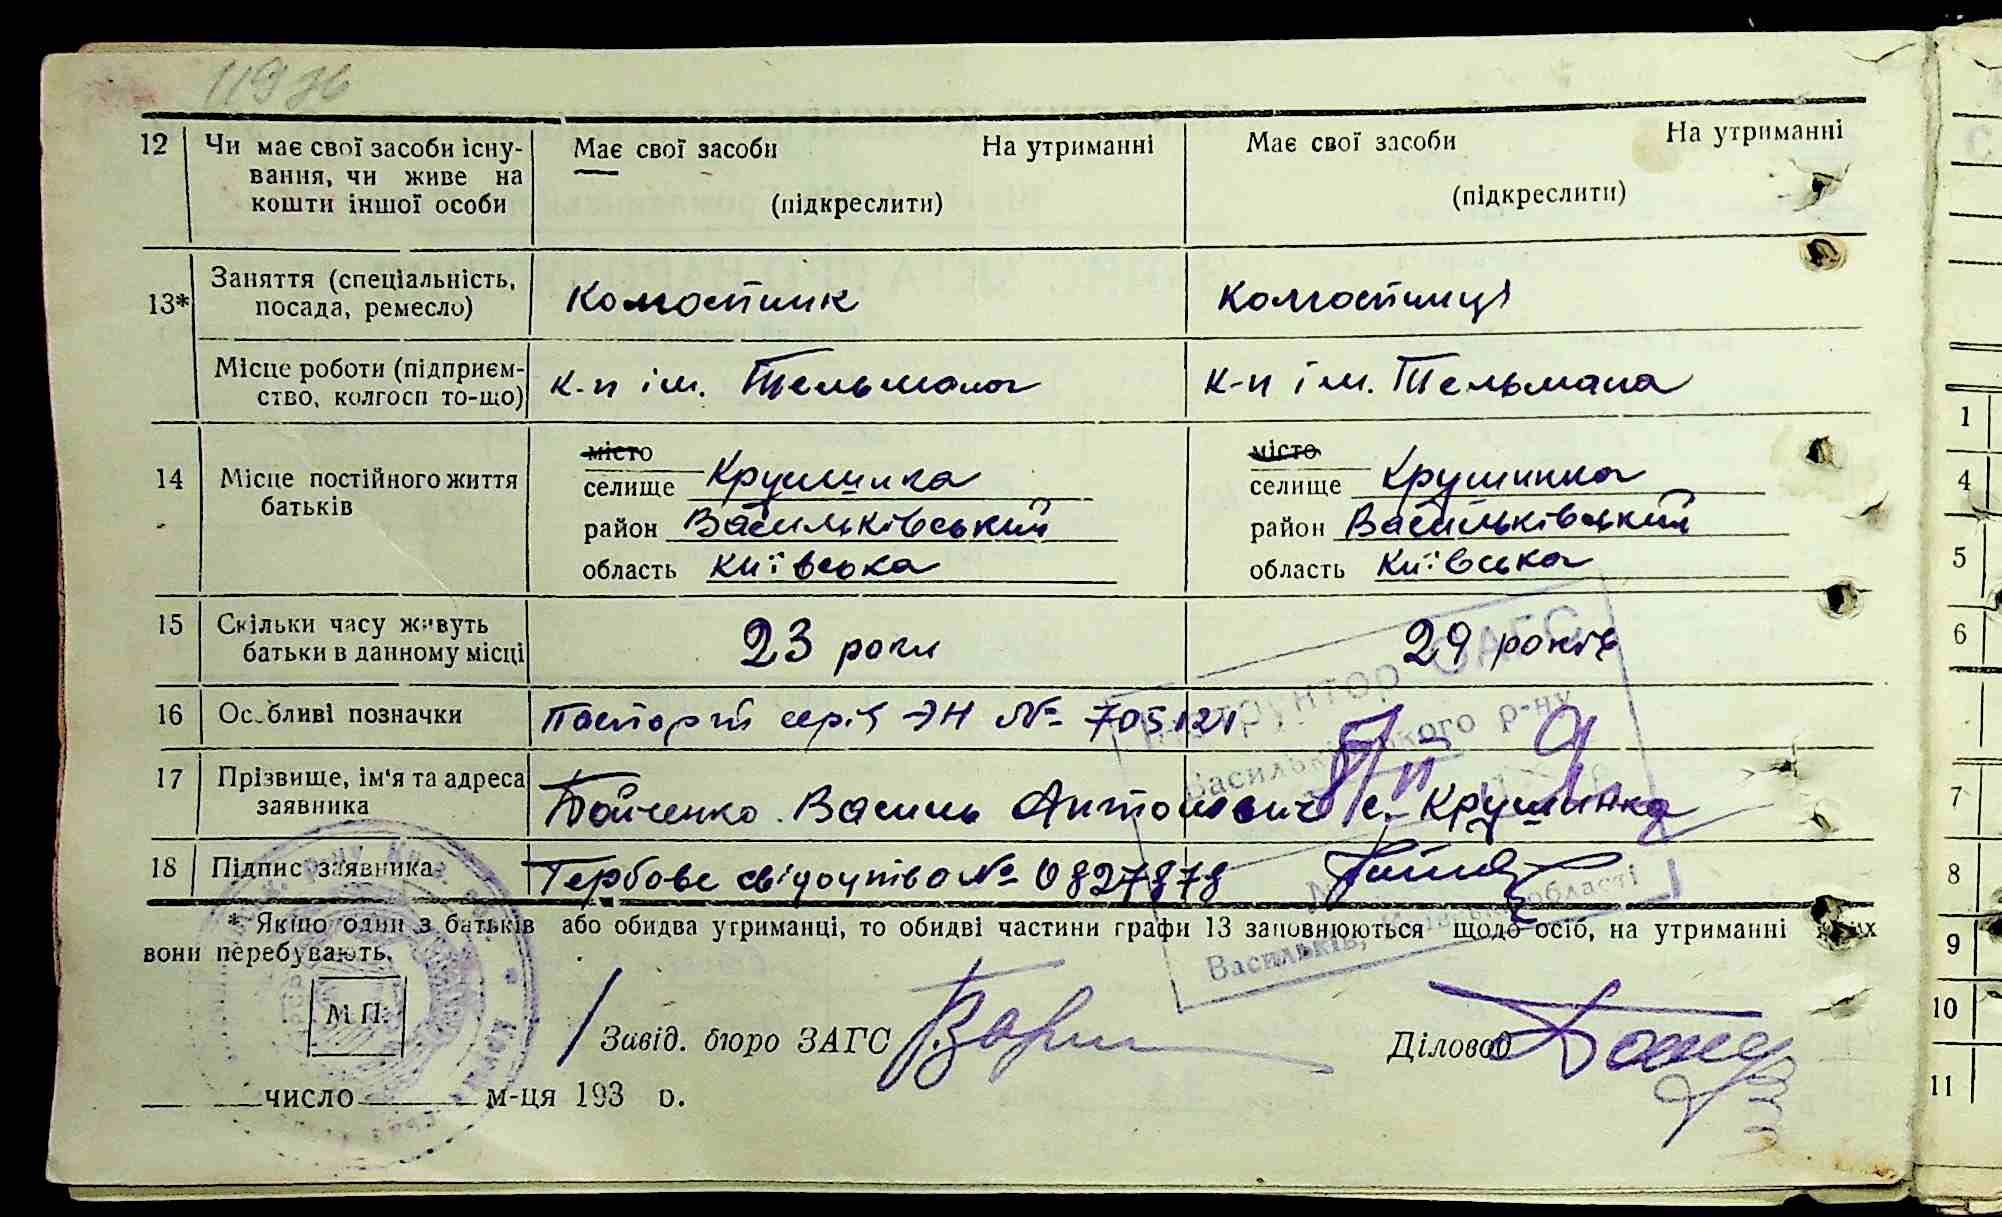 119зв
12 Чи має свої засоби існу- Має свої засоби На утриманні Має свої засоби На утриманні
вання, чи живе на
кошти іншої особи (підкреслити) (підкреслити)
13* Заняття (спеціальність,
посада, ремесло) Колгоспник Колгоспниця
Місце роботи (підприєм-
ство, колгосп то-що) к-п ім. Тельмана к-п ім. Тельмана
місто місто
14 Місце постійного життя селище Крушинка селище Крушинка
батьків район Васильківський район Васильківський
область Київська область Київська
15 Скільки часу живуть
батьки в данному місці 23 роки 29 років
16 Особливі позначки Паспорт серія ЭН № 705121
17 Прізвище, ім'я та адреса
заявника Бойченко Василь Антонович с. Крушинка
18 Підпис заявника Гербове свідоцтво № 0827878
Інструктор ЗАГС
Васильківського р-ну
Васильків, Київської області
* Якщо один з батьків або обидва утриманці, то обидві частини графи 13 заповнюються щодо осіб, на утриманні яких
вони перебувають.
М.П.
Завід. бюро ЗАГС Діловод
число м-ця 193 р.
1
4
5
6
7
8
9
10
11